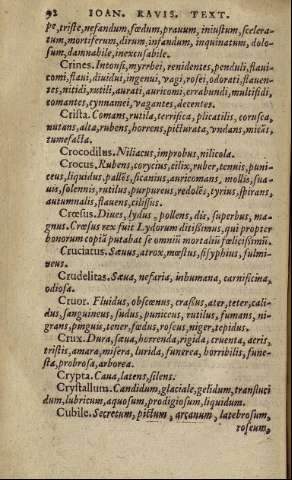 92 IOAN. RAVIS. TEXT.
pe, triste, nefandum, fœdum, prauum, iniustum, scelera-
tum, mortiferum, dirum, infandum, inquinatum, dolo-
sum, damnabile, inexcusabile.
Crines. Intonsi, myrrhei, renidentes, penduli, flaui-
comi, flaui, diuidui, ingenui, vagi, rosei, odorati, flauen-
tes, nitidi, rutili, aurati, auricomi, errabundi, multifidi,
comantes, cynnamei, vagantes, decentes.
Crista. Comans, rutila, terrifica, plicatilis, corusca,
nutans, alta, rubens, horrens, picturata, vndans, micãs,
tumefacta.
Crocodilus. Niliacus, improbus, nilicola.
Crocus. Rubens, corycius, cilix, ruber, tennis, puni-
ceus, liquidus, pallẽs, sicanius, auricomans, mollis, sua-
uis, solennis, rutilus, purpureus, redolẽs, tyrius, spirans,
autumnalis, flauens, cilissus.
Crœsus. Diues, lydus, pollens, dis, superbus, ma-
gnus. Crœsus rex fuit Lydorum ditißimus, qui propter
bonorum copiã putabat se omniũ mortaliũ fœlicißimũ.
Cruciatus. Sæuus, atrox, mœstus, sisyphius, fulmi-
neus.
Crudelitas. Sæua, nefaria, inhumana, carnificina,
odiosa.
Cruor. Fluidus, obscœnus, craßus, ater, teter, cali-
dus, sanguineus, sudus, puniceus, rutilus, fumans, ni-
grans, pinguis, tener, fœdus, roseus, niger, tepidus.
Crux. Dura, sæua, horrenda, rigida, cruenta, aeris,
tristis, amara, misera, lurida, funerea, horribilis, fune-
sta, probrosa, arborea.
Crypta. Caua, latens, silens.
Crystallum. Candidum, glaciale, gelidum, transluci
dum, lubricum, aquosum, prodigiosum, liquidum.
Cubile. Secretum, pictum, arcanum, latebrosum,
roseum,